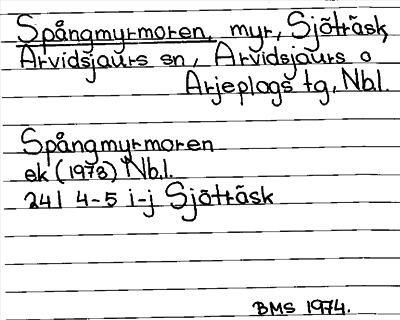 Spångmyrmoren, myr, Sjöträsk,
Arvidsjaurs sn, Arvidsjaurs o
Arjeplogs tg, Nbl.
Spångmyrmoren
ek (1973) Nbl.
24I 4-5 i-j Sjöträsk
BMS 1974.